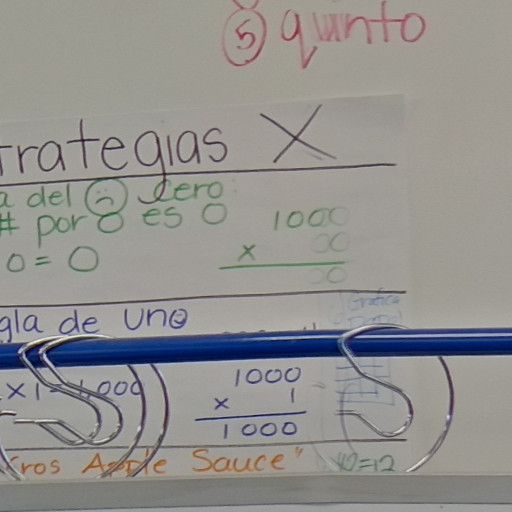 ⑤ quinto
trategias X
a del cero
# por 0 es 0
1000
x 00
00
0 = 0
gla de uno
x 1 = 1,000
1000
x 1
1000
ros Apple Sauce"